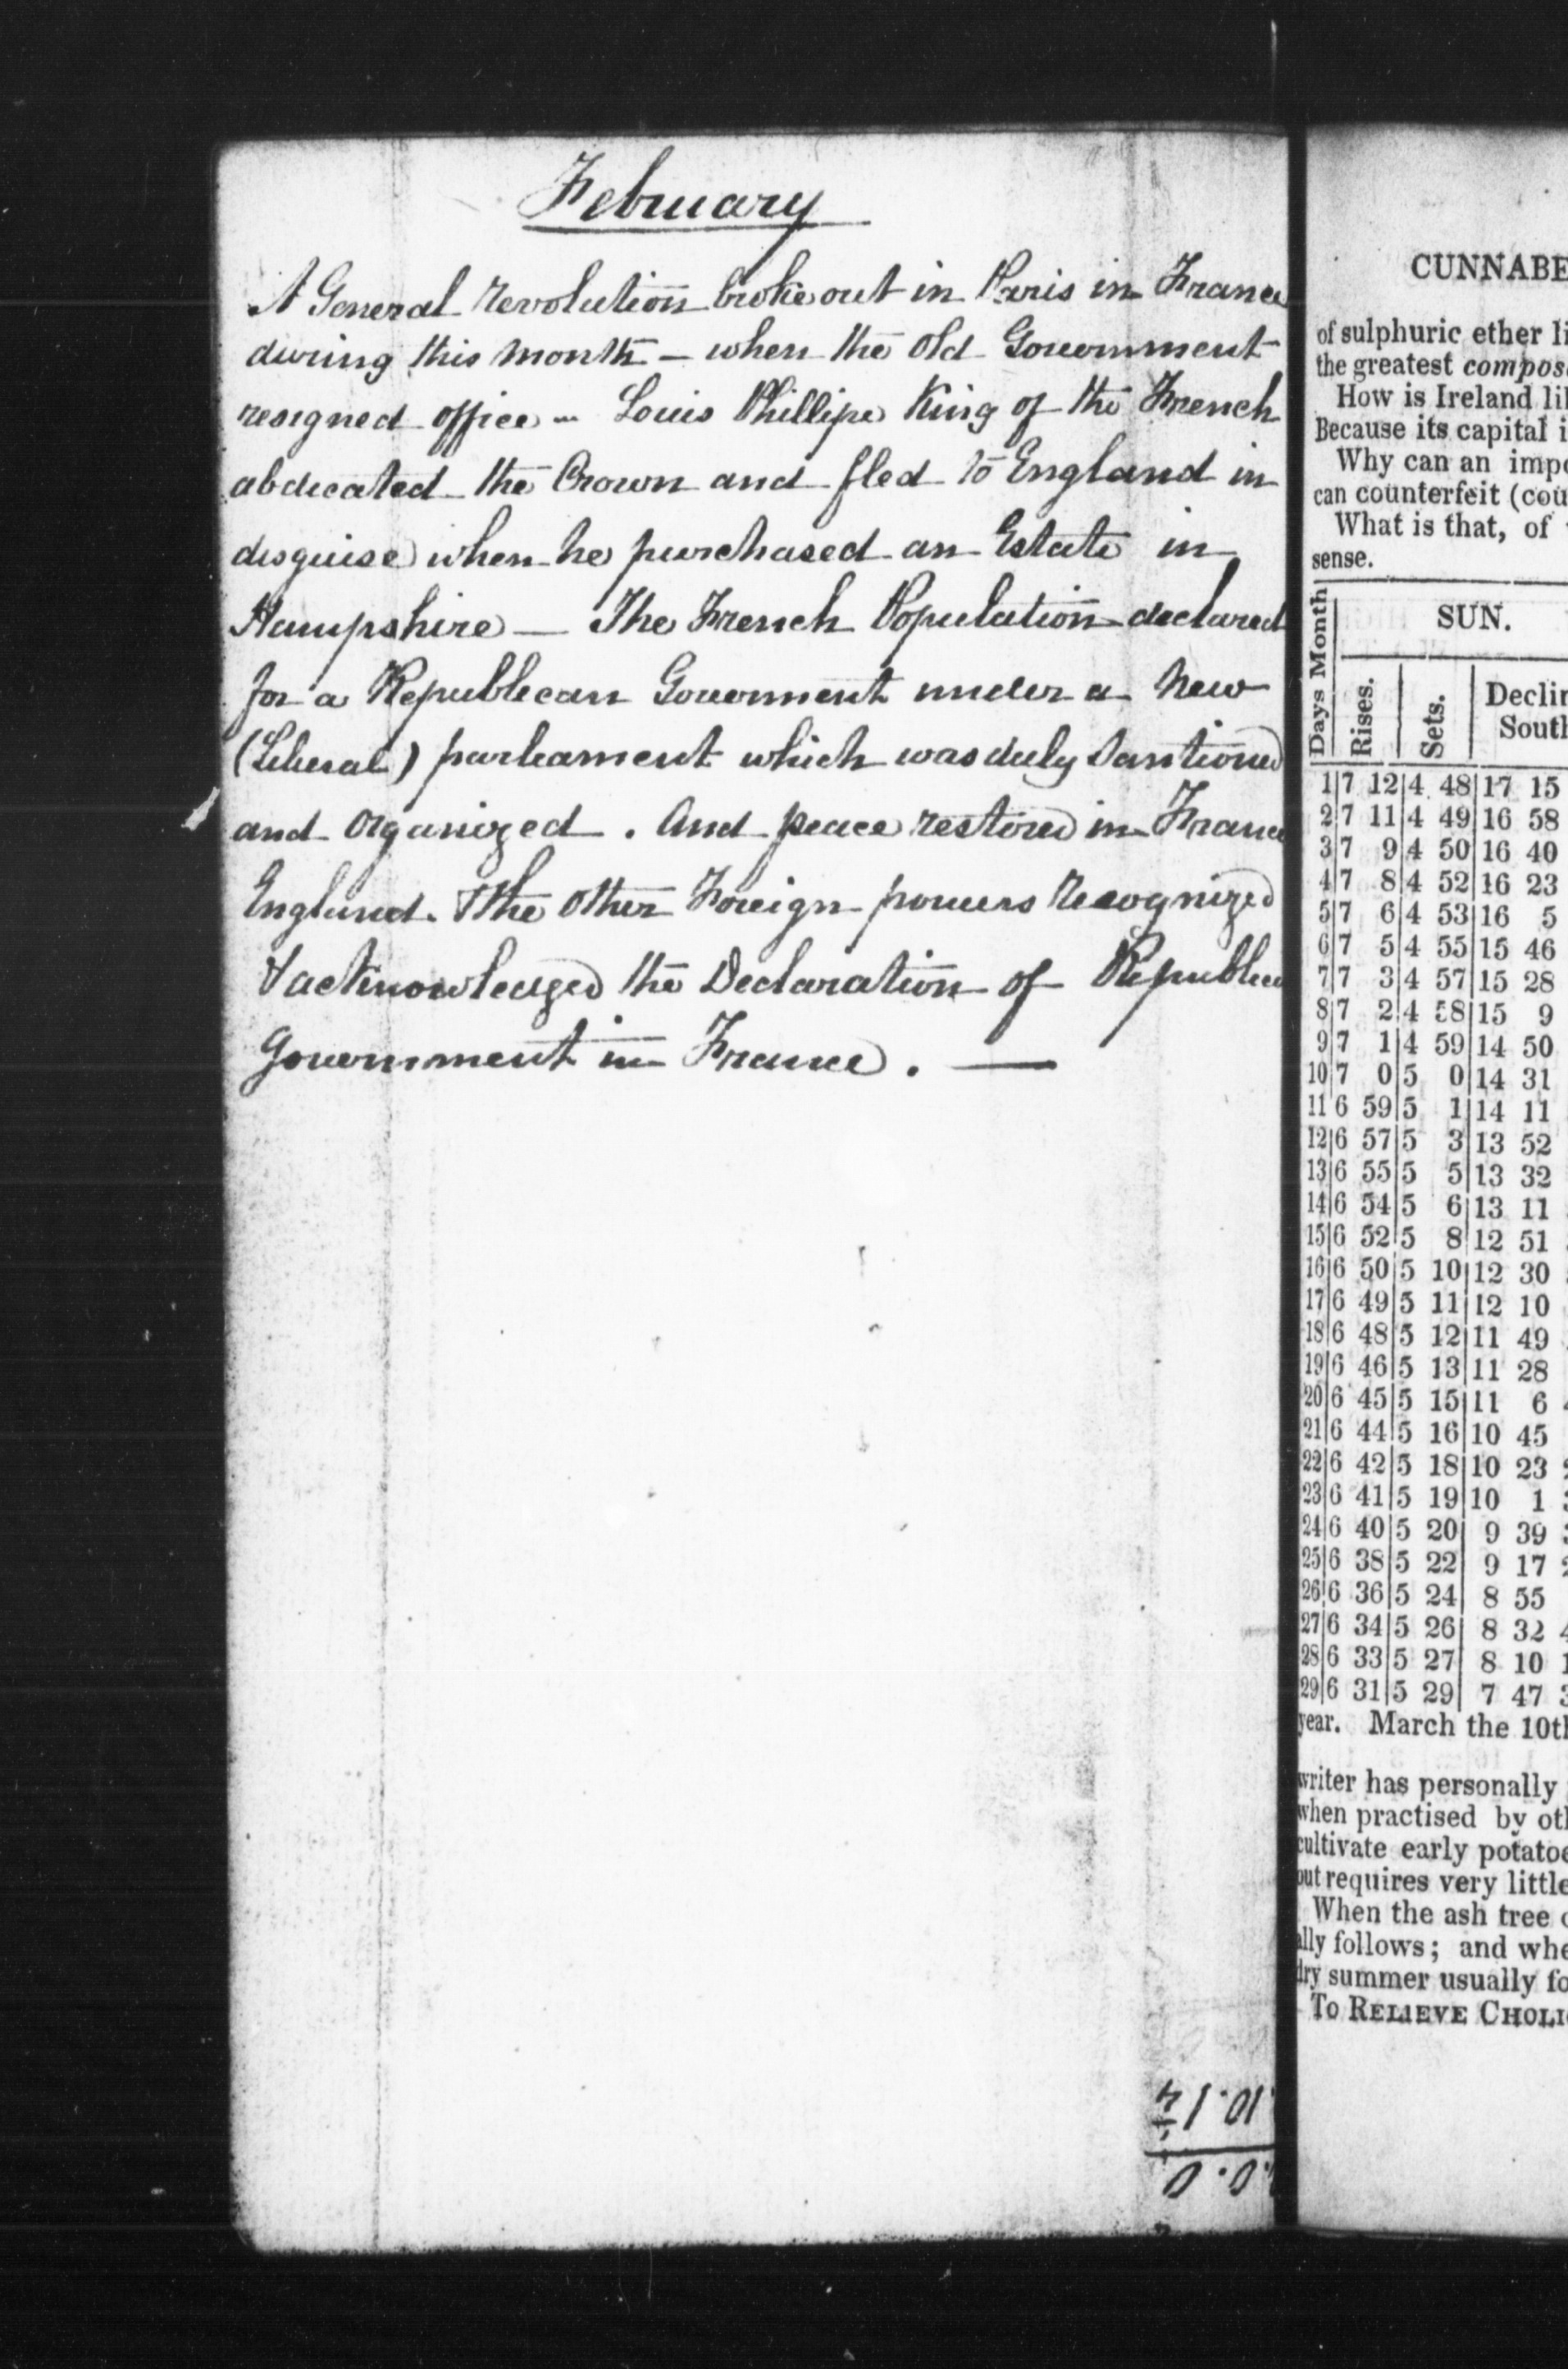 February
A General revolution broke out in Paris in France
during this month – when the old Government
resigned office – Louis Phillipe King of the French
abdicated the Crown and fled to England in
disguise when he purchased an Estate in
Hampshire — The French Population declared
for a Republican Goverment under a New
(Liberal) parliament which was duly Santioned
and Organized. And peace restored in France
England & the other Foreign powers recognized
& acknowledged the Declaration of
Government in France. —
10.1
0.0
CUNNABE
of sulphuric ether li
the greatest compos
How is Ireland lik
Because its capital i
Why can an impo
can counterfeit (cou
What is that, of
sense.
Days Month
SUN.
Rises.
Sets.
Declin
South
1 7 12 4 48 17 15
2 7 11 4 49 16 58
3 7 9 4 50 16 40
4 7 8 4 52 16 23
5 7 6 4 53 16 5
6 7 5 4 55 15 46
7 7 3 4 57 15 28
8 7 2 4 58 15 9
9 7 1 4 59 14 50
10 7 0 5 0 14 31
11 6 59 5 1 14 11
12 6 57 5 3 13 52
13 6 55 5 5 13 32
14 6 54 5 6 13 11
15 6 52 5 8 12 51
16 6 50 5 10 12 30
17 6 49 5 11 12 10
18 6 48 5 12 11 49
19 6 46 5 13 11 28
20 6 45 5 15 11 6
21 6 44 5 16 10 45
22 6 42 5 18 10 23
23 6 41 5 19 10 1
24 6 40 5 20 9 39
25 6 38 5 22 9 17
26 6 36 5 24 8 55
27 6 34 5 26 8 32
28 6 33 5 27 8 10
29 6 31 5 29 7 47
year. March the 10th
writer has personally
when practised by oth
cultivate early potatoe
but requires very little
When the ash tree
ally follows; and whe
dry summer usually fo
To RELIEVE CHOLI